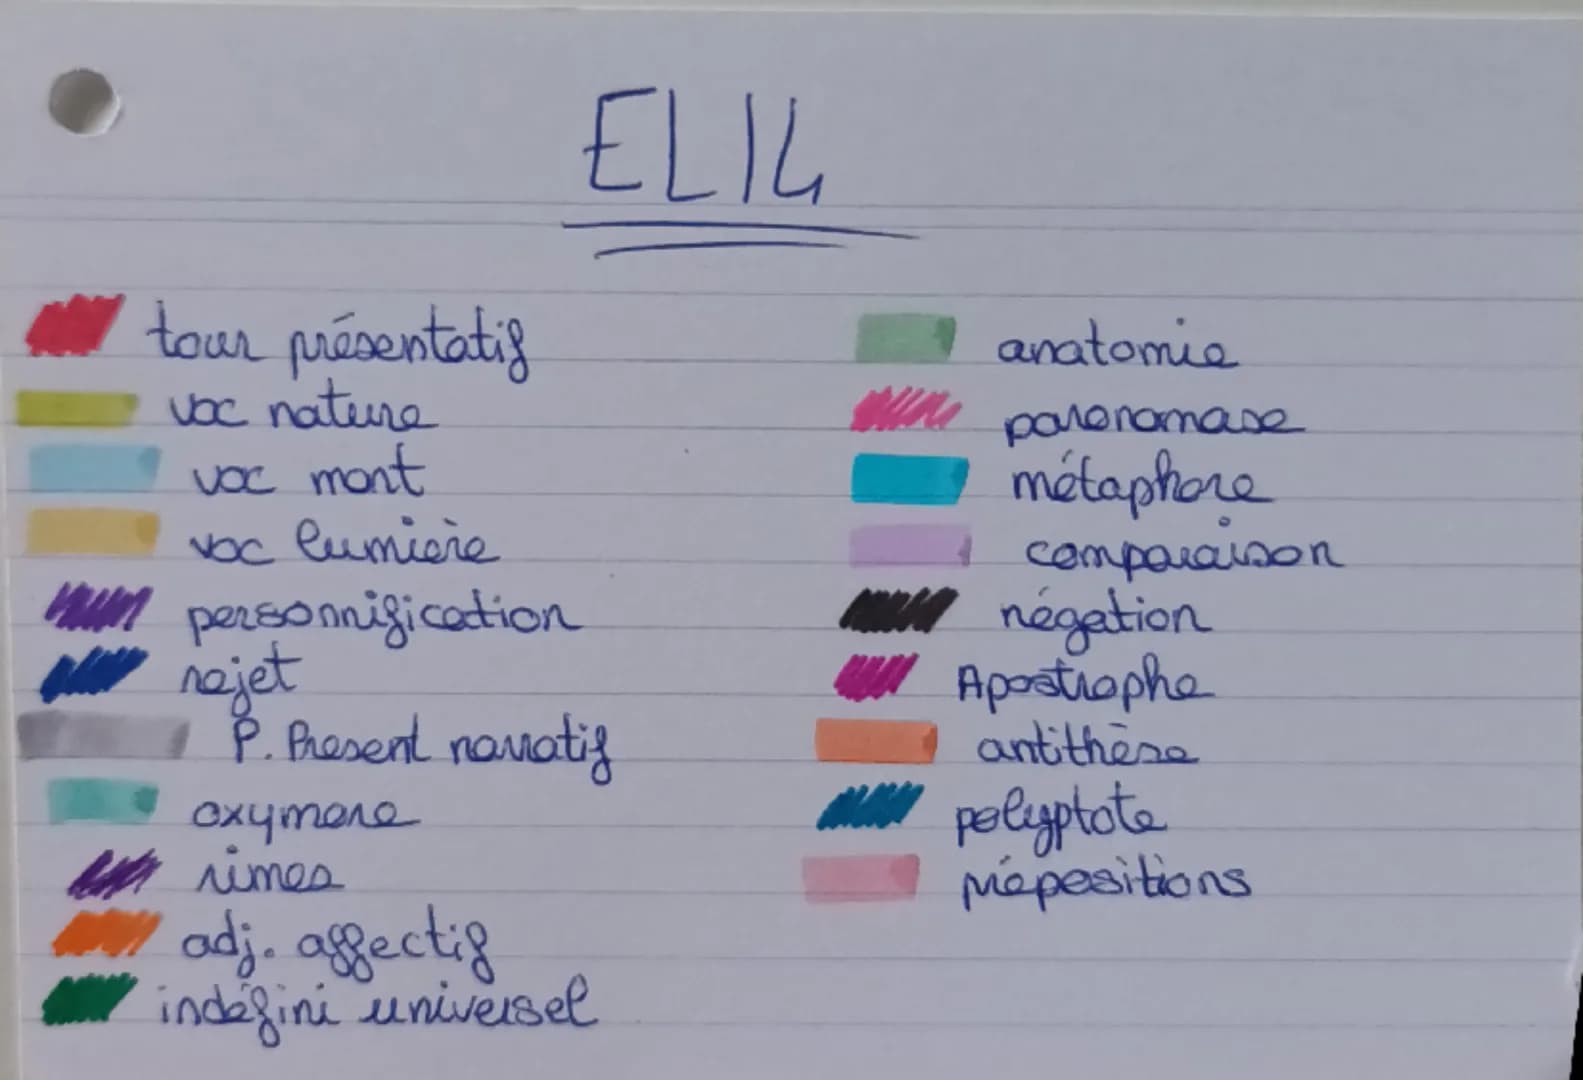 EL14
tour présentatif
voc nature
voc mort
voc lumière
personnification
rejet
P. Present narratif
oxymore
rimes
adj. affectif
indéfini universel
anatomie
paronomase
métaphore
comparaison
négation
Apostrophe
antithèse
polyptote
prépositions